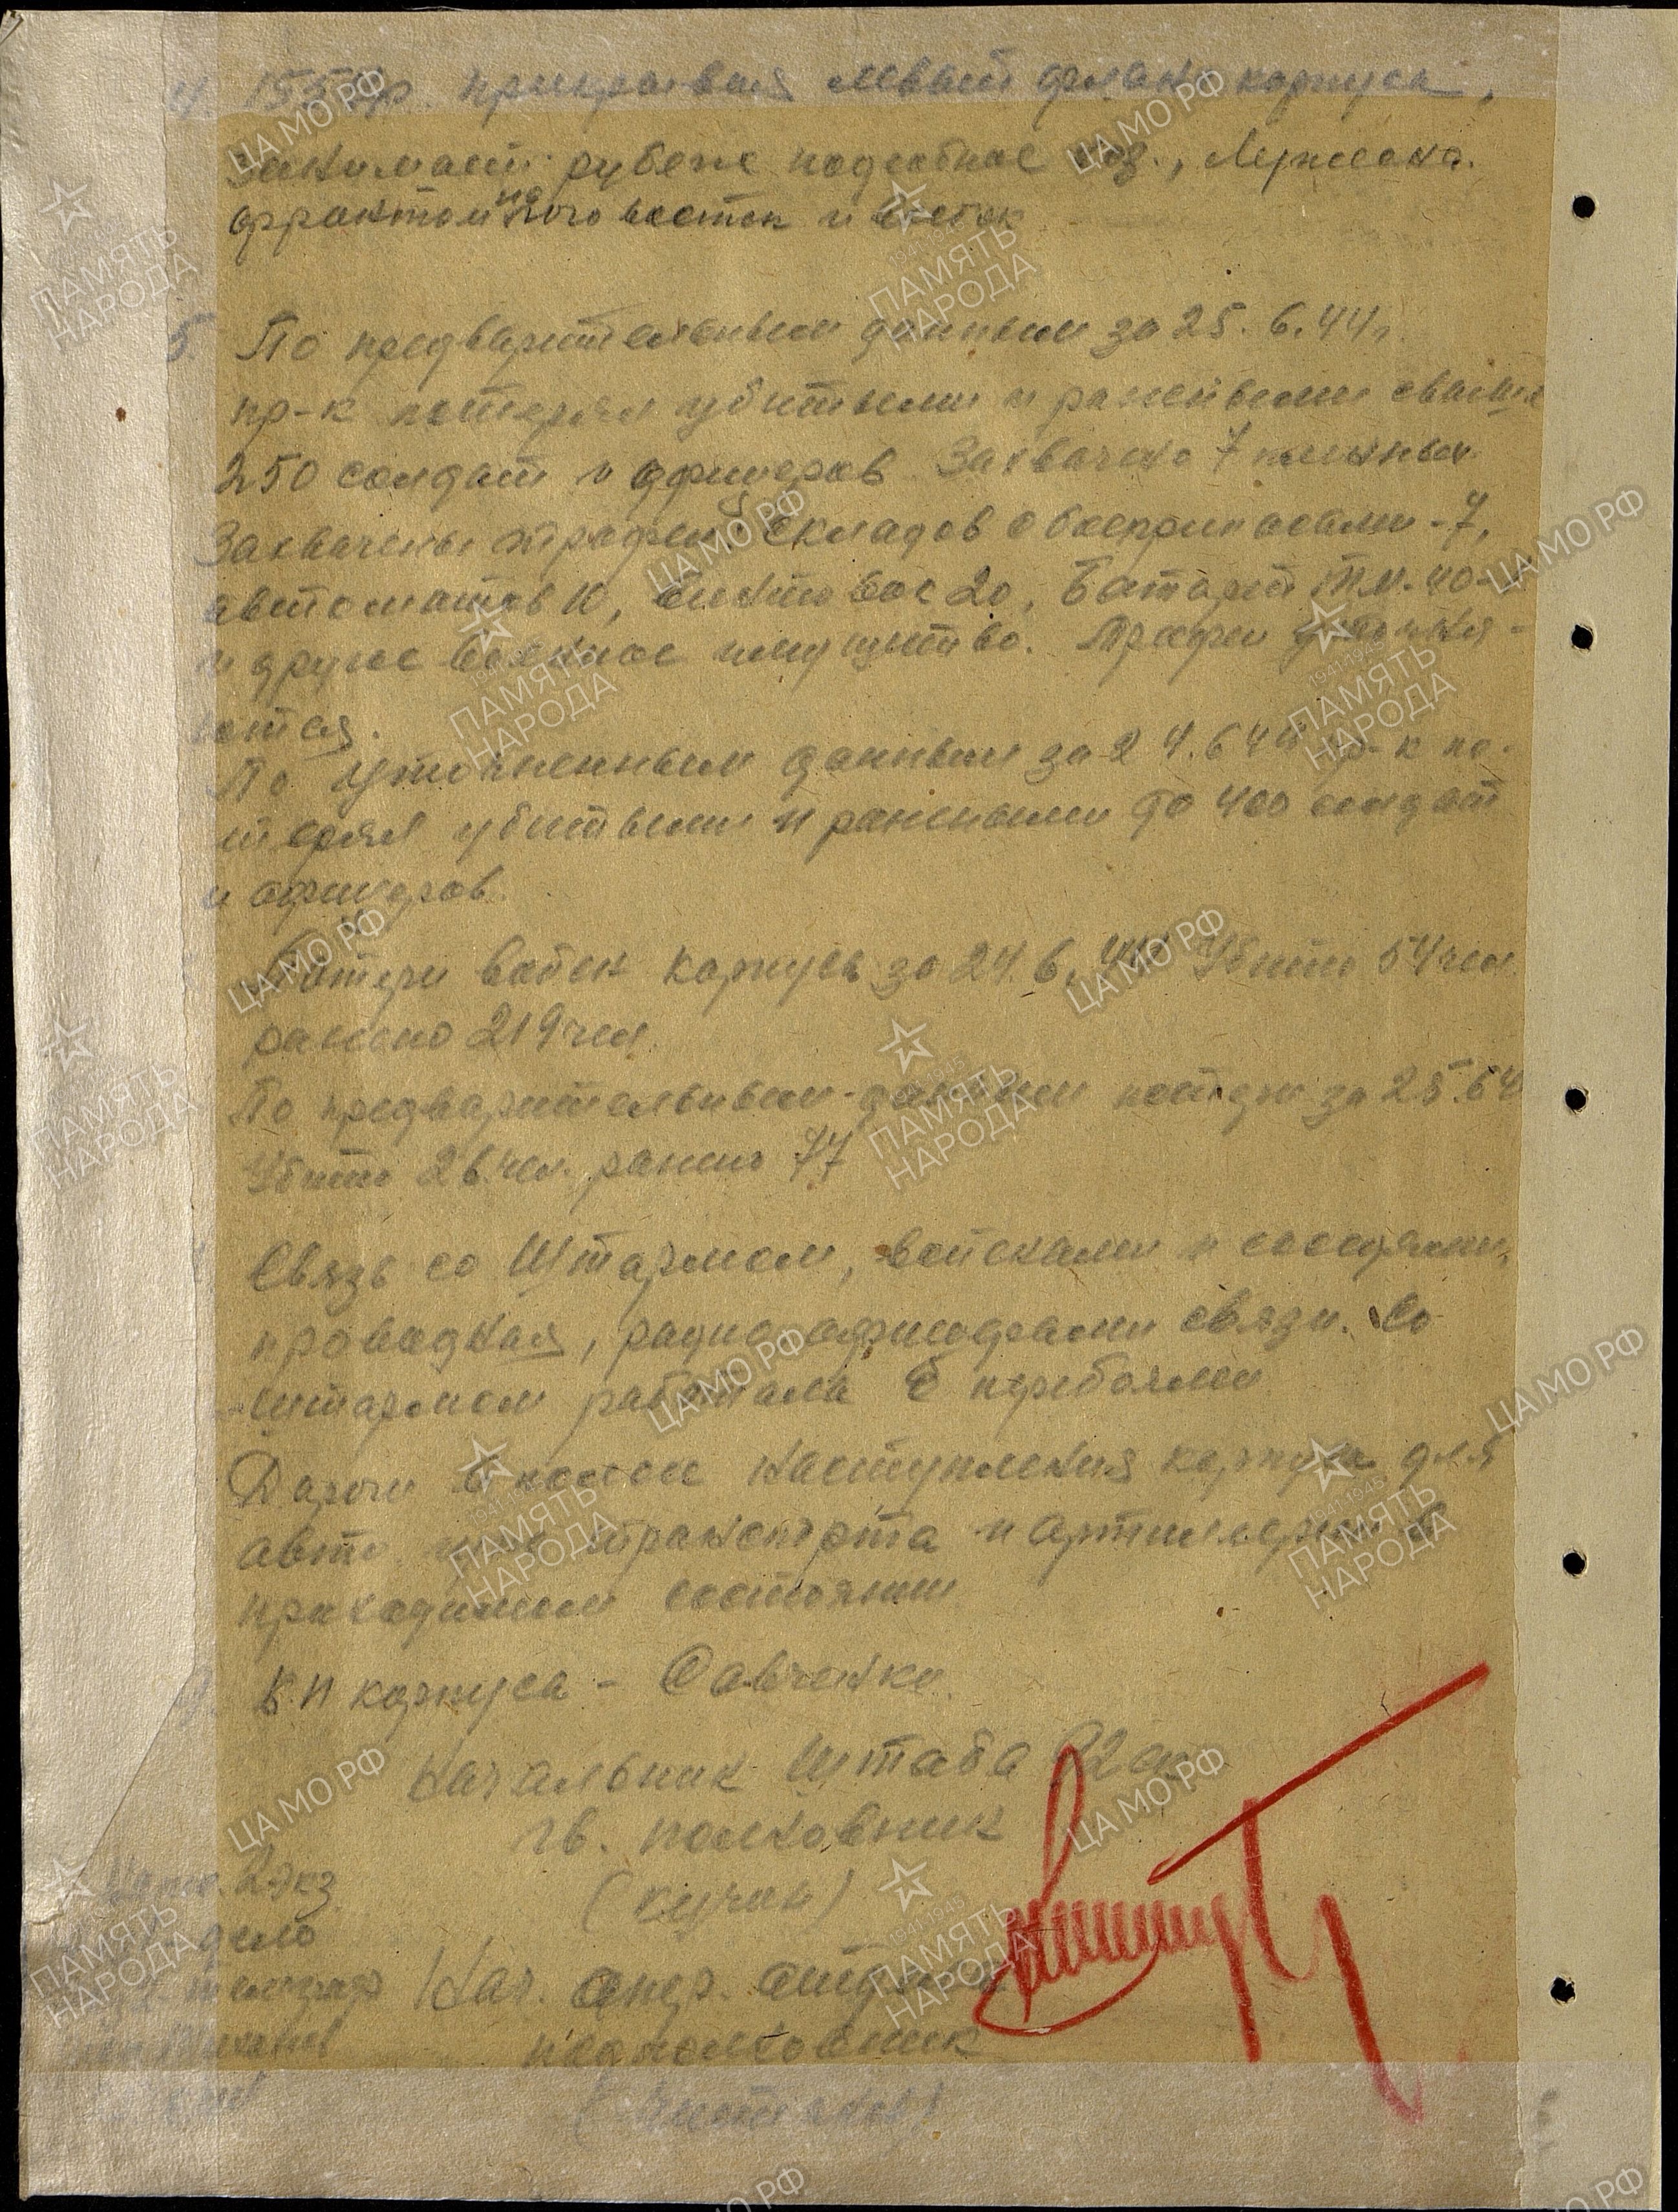 4. 155 Ур. прикрывая левый фланг корпуса,
занимает рубеж подсобное хоз.,
фронтом на юго восток и восток
5. По предварительным данным за 25.6.44г.
пр-к потерял убитыми и ранеными свыше
250 солдат и офицеров Захвачено 7 пленных
Захвачены трофеи, складов с боеприпасами - 7,
автоматов 10, винтовок 20,
и другое военное имущество. Трофеи уточня-
ются.
По уточненным данным за 24.6.44г. пр-к по-
терял убитыми и ранеными до 400 солдат
и офицеров.
Потери войск корпуса за 24.6.44г Убито 54 чел
ранено 219 чел.
По предварительным данным потери за 25.6.4
Убито 26 чел. ранено 77
Связь со Штармом, войсками и соседями,
проводная, радио офицерами связи. Со
штармом работала с перебоями
Дороги в полосе наступления корпуса для
авто транспорта и артиллерии в
проходимом состоянии
КП корпуса - Савченки.
Начальник Штаба 92 ск
гв. полковник
2 экз
дело
Нач. опер. отдела
подполковник
ПАМЯТЬ НАРОДА
1941-1945
ЦА МО РФ